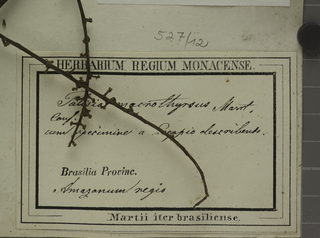 527/12
HERBARIUM REGIUM MONACENSE.
macrothyrsus Mart.
cum specimine a describente.
Brasilia Provinc.
Amazonum regis
Martii iter brasiliense.